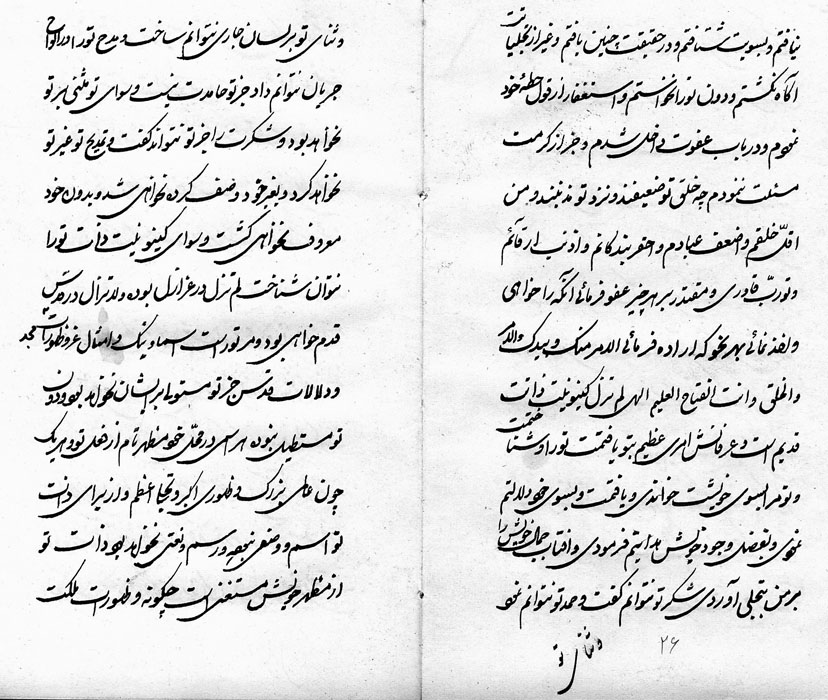 نیافتم و بسویت شتافتم و در حقیقت چنین یافتم و غیر از تجلیات
آگاه نگشتم و دون تو را نخوانستم و استغفار از قول خطاء خود
نمودم و در باب عفوت داخل شدم و جز از کرمت
مسئلت ننمودم چه خلق تو ضعیفند و نزد تو مذنبند و من
اقلّ خلقم و اضعف عبادم و احقر بندگانم و اذنب ارقائم
و تو ربّ قادری و مقتدر بر هر چیز عفو فرمائی آنکه را خواهی
و اخذ نمائی بهر نحو که اراده فرمائی الامر منک و بیدک و الامر
و الخلق و انت الفتاح العلیم الهی لم تزل کینونیت و ذاتت
قدیم است و عرفانش امری عظیم بتو یافتمت تو را و شناختمت
و تو مرا بسوی خویشت خواندی و یافتمت و بسوی خود دلالتم
نمودی و بفضل وجود خویش هدایتم فرمودی و آفتاب جمال خویش را
بر من بتجلی آوردی شکر تو نتوانم گفت و حمد تو نتوانم نمود
و ثنای تو
۲۶
و ثنای تو بر لسان جاری نتوانم ساخت و مدح تو را در الواح
جریان نتوانم داد جز تو حامدت نیست و سوای تو مثنی بر تو
نخواهد بود و شکرت را جز تو نتواند گفت و تمدیح تو غیر تو
نخواهد کرد و بغیر خود وصف کرده نخواهی شد و بدون خود
معروف نخواهی گشت و سوای کینونیت و ذات تو را
نتوان شناخت لم تزل در عز ازل بوده و لا تزال در قدس
قدم خواهی بود و مر تو راست اسماء نیک و امثال عز و ظهورات مجد
و دلالات قدس جز تو مستولی بر ایشان نخواهد بود و دون
تو مستطیل نبوده هر اسمی در محلّ خود مظهر تام از فعل تو و هر یک
چون عالمی بزرگ و ظهوری اکبر و تجلی اعظم و از برای ذاتت
نه اسم و وصفی نیست و رسم و نعتی نخواهد بود ذات تو
از مظهر خویش مستغنی است چگونه و ظهورات ملکت